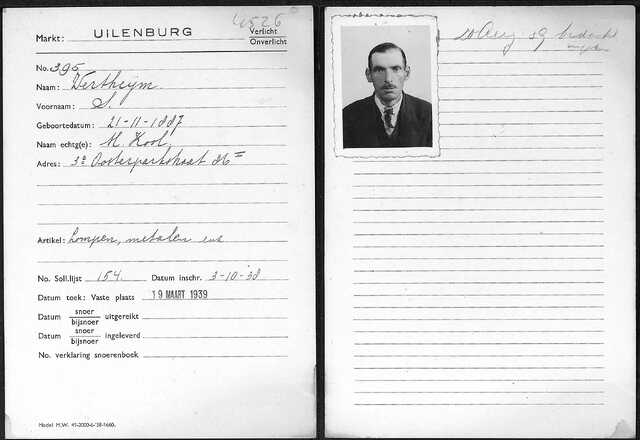 4526
Markt: UILENBURG Verlicht
Onverlicht
No. 395
Naam: Wertheym
Voornaam: S.
Geboortedatum: 21-11-1887
Naam echtg(e): M. Kool
Adres: 3e Oosterparkstraat 86 II
Artikel: Lompen, metalen enz
No. Soll.lijst 154. Datum inschr. 3-10-38
Datum toek: Vaste plaats 19 MAART 1939
Datum snoer
bijsnoer uitgereikt
Datum snoer
bijsnoer ingeleverd
No. verklaring snoerenboek
Model M.W. 41-2000-6-'38-1660.
20 Aug 39